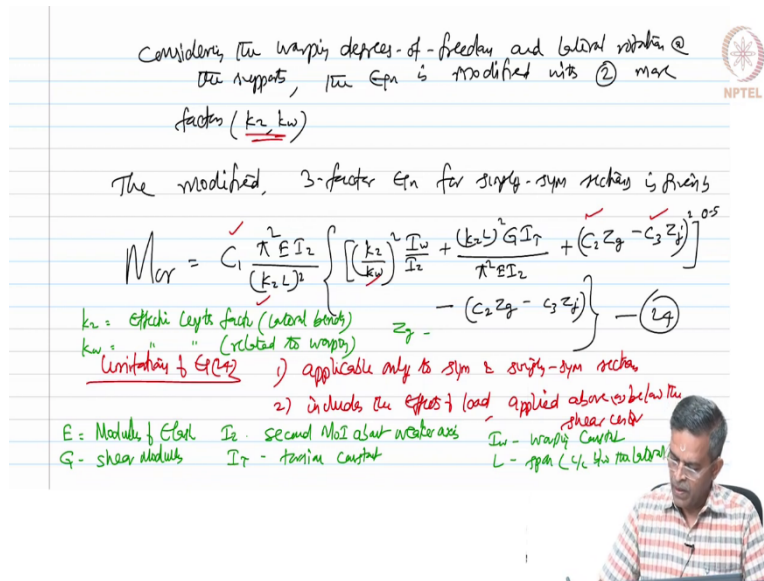 Considering the warping degrees-of-freedom and lateral rotation @
the supports, the Eqn is modified with ② more
factors (kz, kw)
NPTEL
The modified, 3-factor Eqn for singly-sym sections is given by
Mcr = C1 π²EIz/(kzL)² {[(kz/kw)² Iw/Iz + (kzL)²GIT/π²EIz + (C2Zg - C3Zj)²]^0.5
- (C2Zg - C3Zj)} - (24)
kz = Effective length factor (lateral bending) Zg -
kw = " " (related to warping)
Limitations of Eq(24) 1) applicable only to sym & singly-sym sections
2) includes the effect of load applied above or below the
shear center
E = Modulus of Elast Iz - second MoI about weaker axis Iw - warping constant
G - shear modulus IT - torsion constant L - span (c/c b/w the lateral